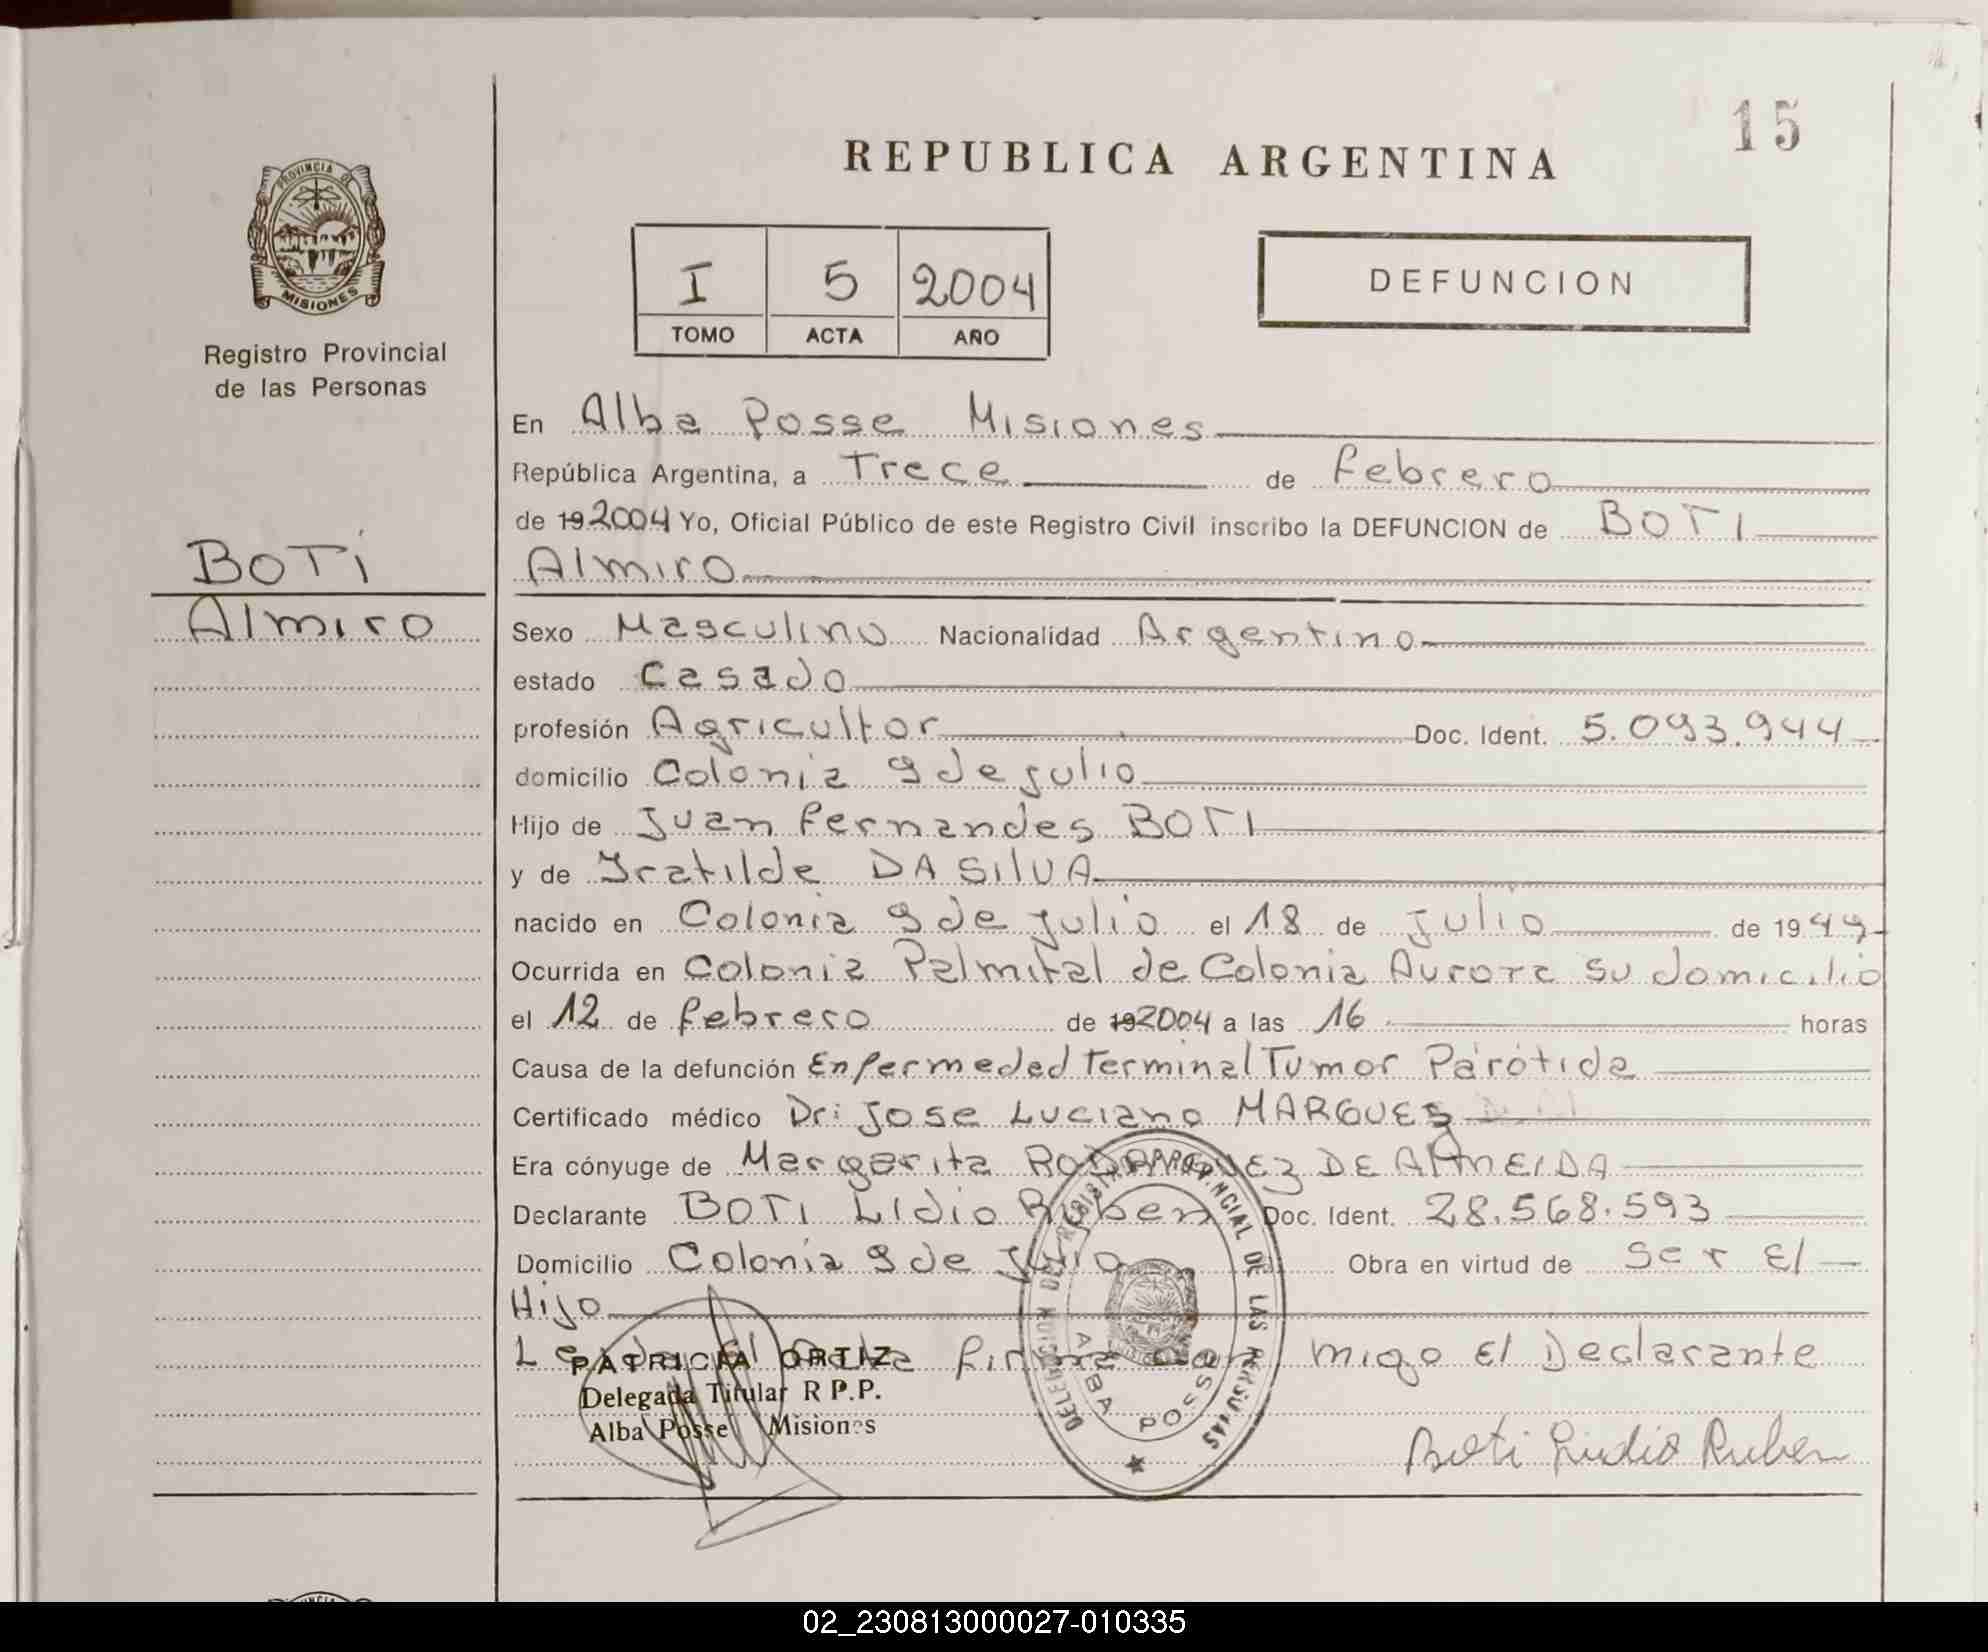 15
REPUBLICA ARGENTINA
PROVINCIA DE
MISIONES
Registro Provincial
de las Personas
I 5 2004
TOMO ACTA AÑO
DEFUNCION
En Alba Posse Misiones
República Argentina, a Trece de febrero
de 192004 Yo, Oficial Público de este Registro Civil inscribo la DEFUNCION de BOTI
Almiro
BOTI
Almiro
Sexo Masculino Nacionalidad Argentino
estado Casado
profesión Agricultor Doc. Ident. 5.093.944
domicilio Colonia 9 de julio
Hijo de Juan fernandes BOTI
y de Iratilde DA SILVA
nacido en Colonia 9 de julio el 18 de julio de 1949
Ocurrida en Colonia Palmital de Colonia Aurora su domicilio
el 12 de febrero de 192004 a las 16 horas
Causa de la defunción Enfermedad Terminal Tumor Parótida
Certificado médico Dr: Jose Luciano MARQUES
Era cónyuge de Margarita RODRIGUEZ DE ALMEIDA
Declarante BOTI Lidio Ruben Doc. Ident. 28.568.593
Domicilio Colonia 9 de Julio Obra en virtud de Ser El
Hijo
Leida el Acta firma con migo El Declarante
PATRICIA ORTIZ
Delegada Titular R P.P.
Alba Posse Misiones
DELEGACION DEL REGISTRO PROVINCIAL DE LAS PERSONAS
ALBA POSSE
Boti Lidio Ruben
02_230813000027-010335